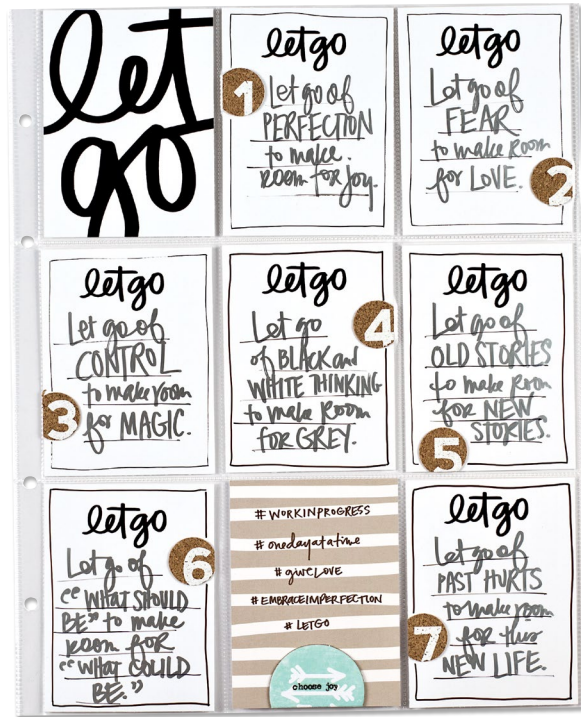 let
go
let go
1
Let go of
PERFECTION
to make
room for joy.
let go
Let go of
FEAR
to make Room
for LOVE.
2
let go
Let go of
CONTROL
to make room
for MAGIC.
3
let go
Let go
4
of BLACK and
WHITE THINKING
to make Room
FOR GREY.
let go
Let go of
OLD STORIES
to make Room
FOR NEW
STORIES.
5
let go
Let go of
6
"WHAT SHOULD
BE" to make
ROOM FOR
"WHAT COULD
BE."
#WORKINPROGRESS
#onedayatatime
#giveLOVE
#EMBRACEIMPERFECTION
#LETGO
choose joy
let go
Let go of
PAST HURTS
to make room
7
for this
NEW LIFE.